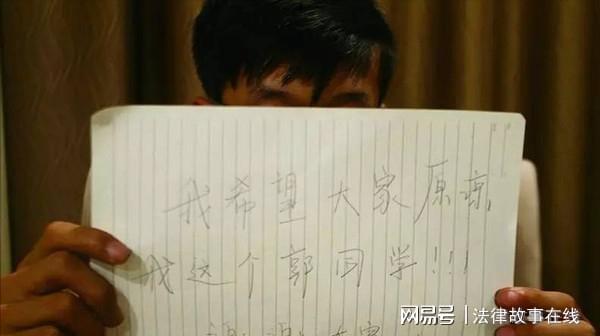 我希望大家原谅
我这个郭同学!!!
谢谢大家
网易号 | 法律故事在线